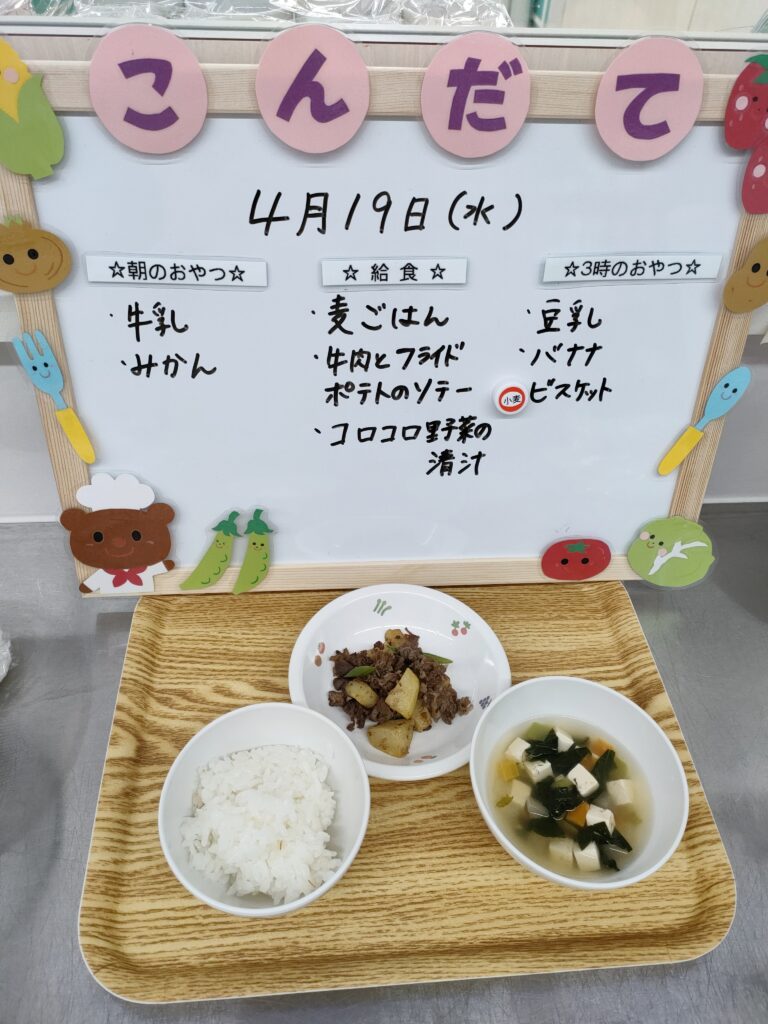 こんだて
4月19日(水)
☆朝のおやつ☆
・牛乳
・みかん
☆ 給食 ☆
・麦ごはん
・牛肉とフライド
ポテトのソテー
・コロコロ野菜の
清汁
☆3時のおやつ☆
・豆乳
・バナナ
小麦
ビスケット